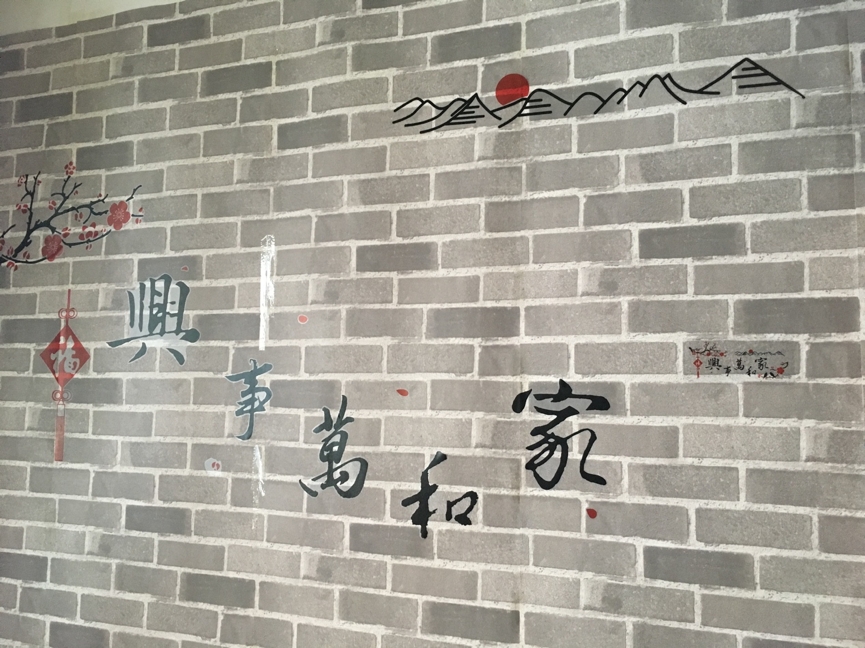 家和萬事興
福
興事萬和家